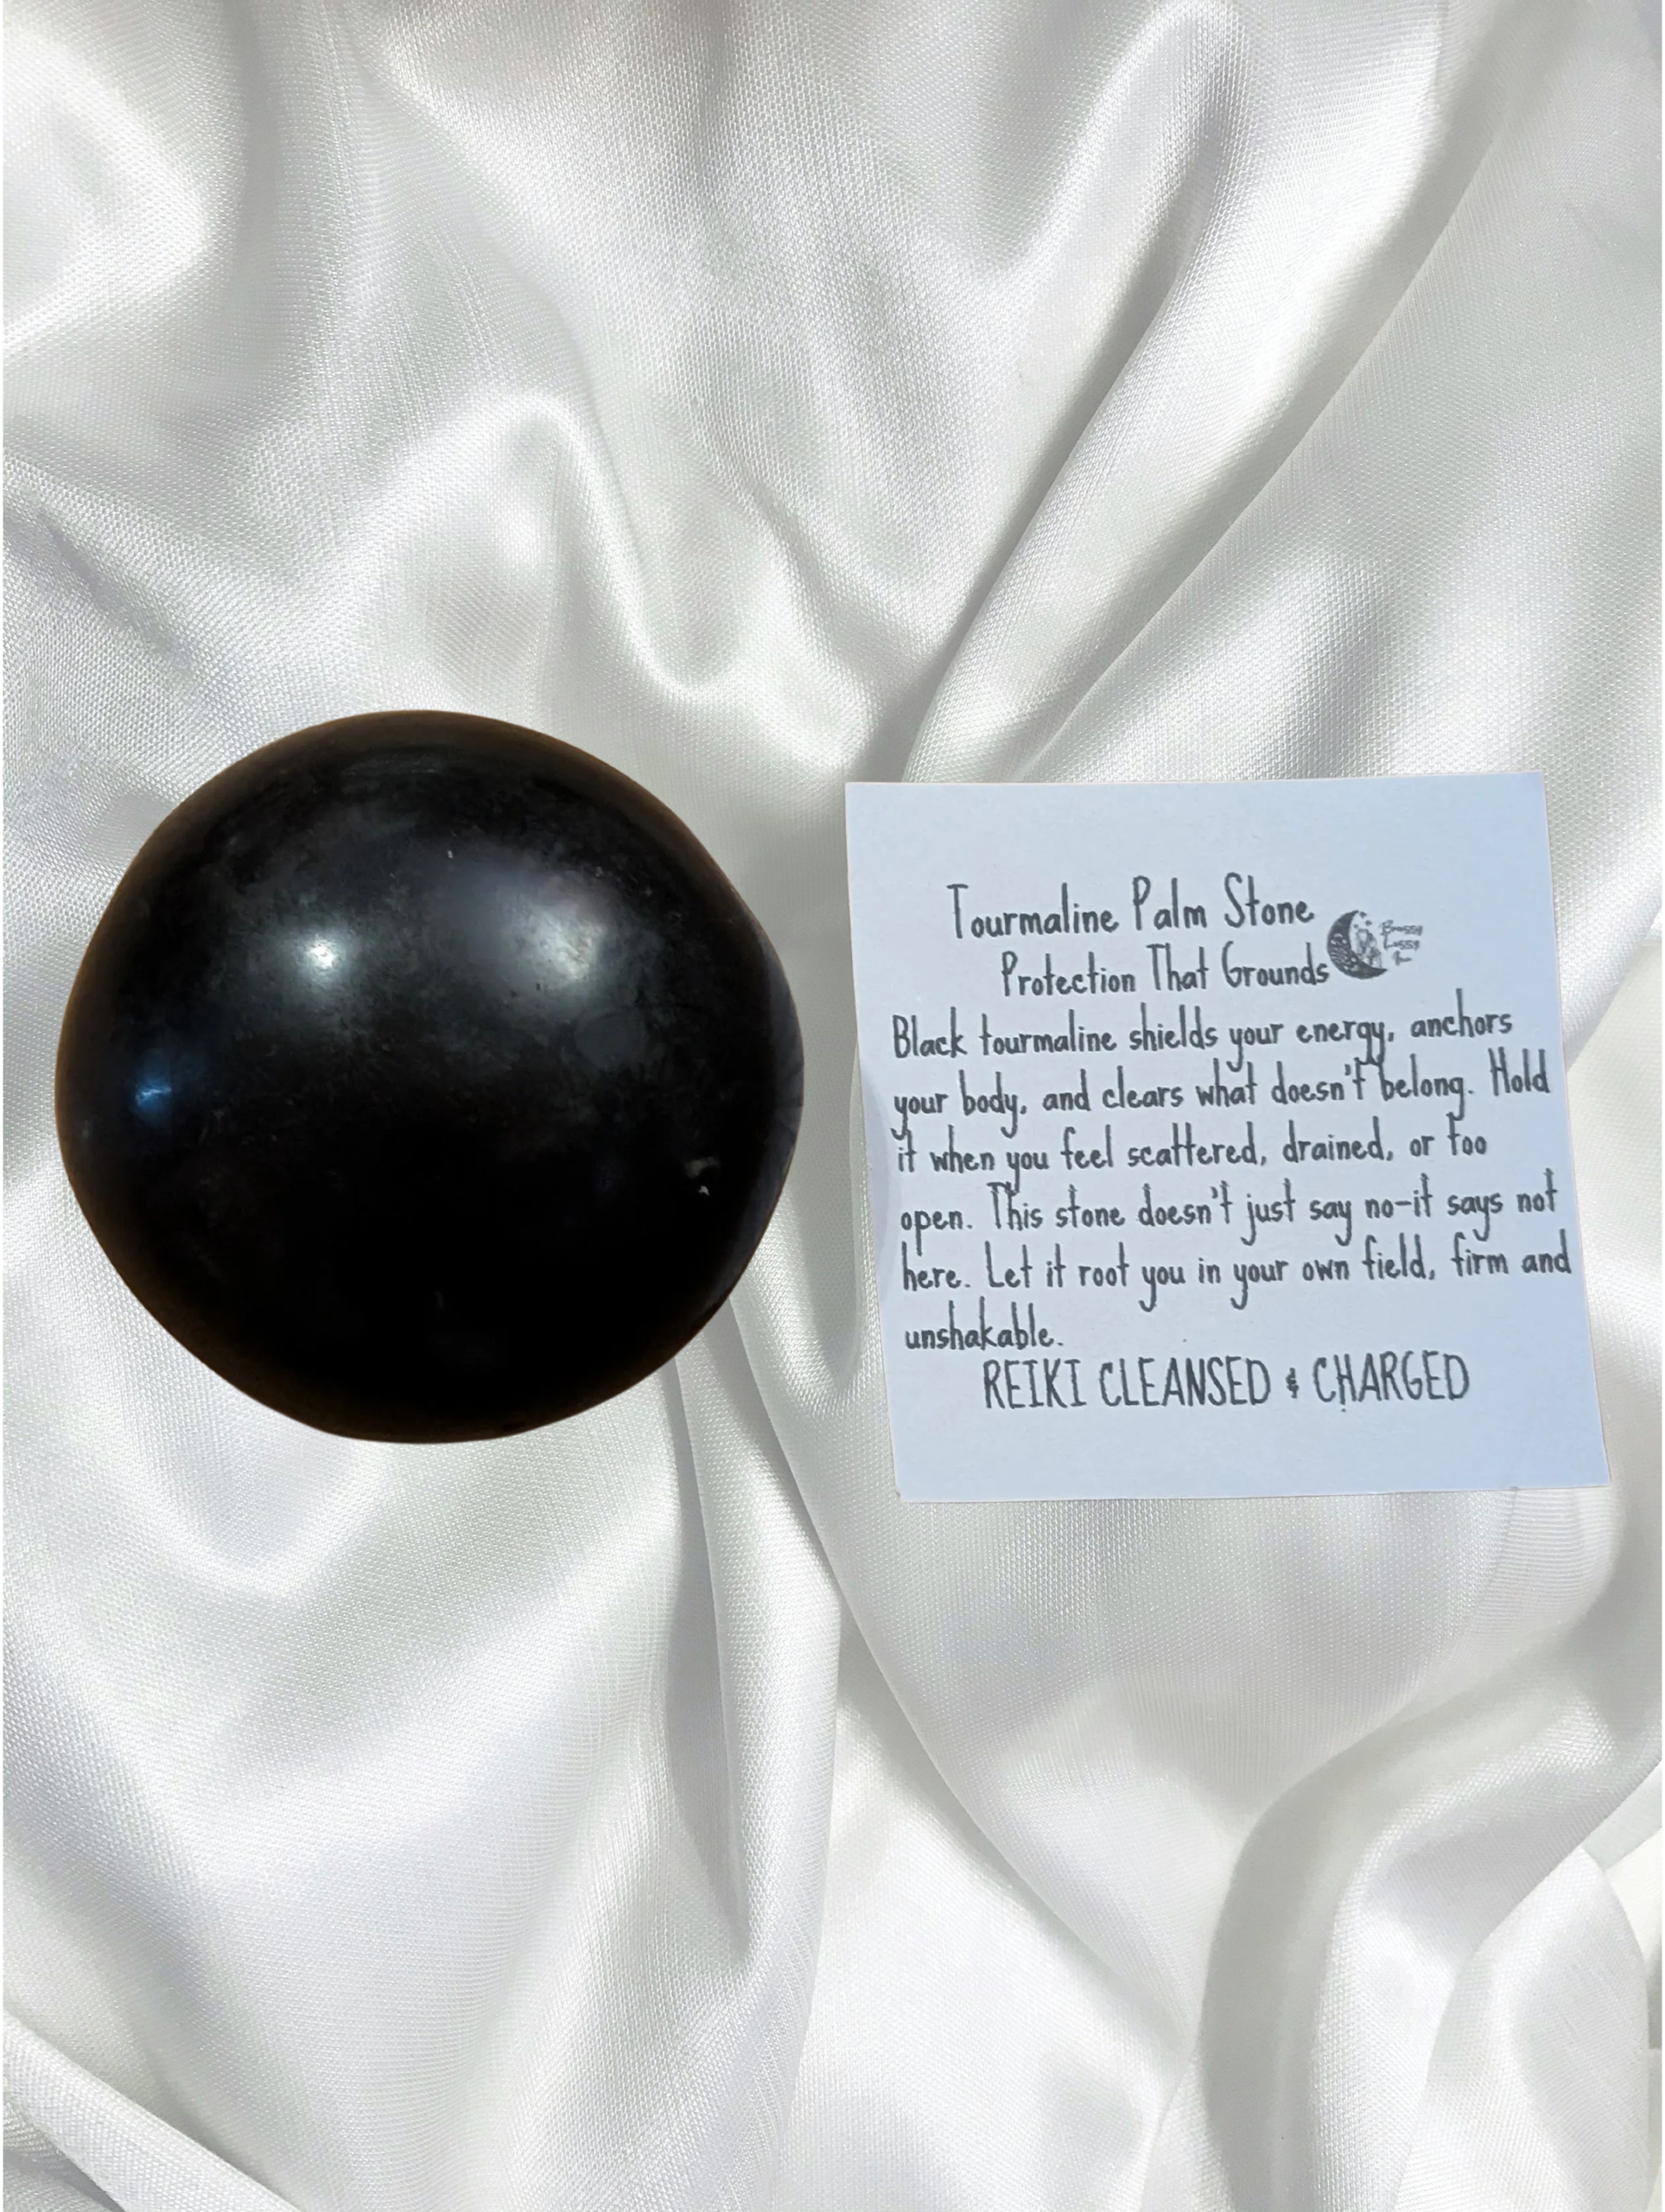 Tourmaline Palm Stone
Protection That Grounds
Black tourmaline shields your energy, anchors
your body, and clears what doesn't belong. Hold
it when you feel scattered, drained, or too
open. This stone doesn't just say no-it says not
here. Let it root you in your own field, firm and
unshakable.
REIKI CLEANSED & CHARGED